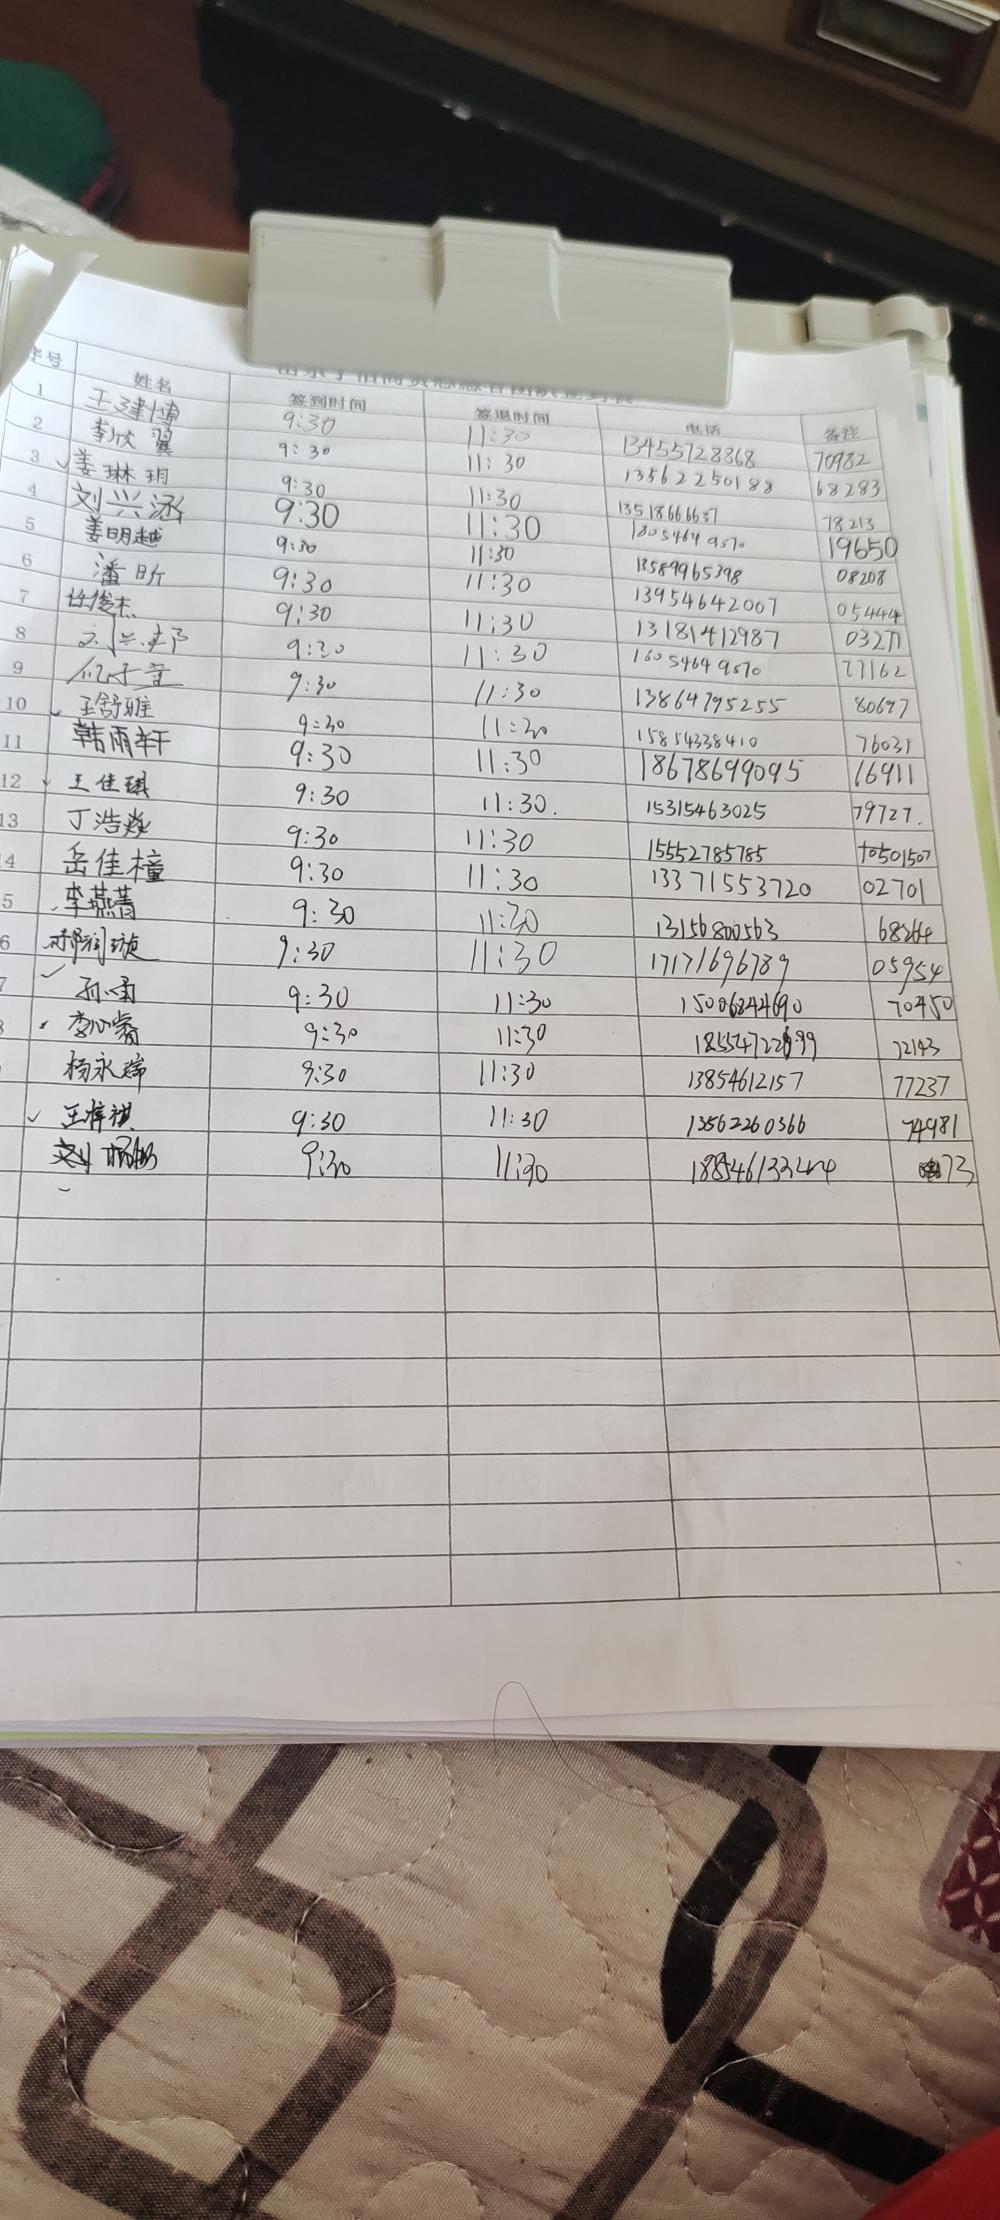 序号 姓名 签到时间 签退时间 电话 备注
1 王建博 9:30 11:30 13455728868 70982
2 李欣翼 9:30 11:30 13562250188 68283
3 姜琳玥 9:30 11:30 13518666637 78213
4 刘兴涵 9:30 11:30 18054649570 19650
5 姜明越 9:30 11:30 13589965398 08208
6 潘昕 9:30 11:30 13954642007 05444
7 任俊杰 9:30 11:30 13181412987 03271
8 9:30 11:30 18054649570 77162
9 9:30 11:30 13864795255 80697
10 王舒雅 9:30 11:30 15854338410 76031
11 韩雨轩 9:30 11:30 18678699095 16911
12 王佳琪 9:30 11:30. 15315463025 79727.
13 丁浩焱 9:30 11:30 15552785785
4 岳佳橦 9:30 11:30 13371553720 02701
5 李燕菁 9:30 11:30 13156800563 68264
6 郝润璇 9:30 11:30 17171696789 05954
7 孙雨 9:30 11:30 15006844690 70450
李心蕊 9:30 11:30 72143
杨永瑞 9:30 11:30 13854612157 77237
王梓祺 9:30 11:30 13562260366 74981
9:30 11:30